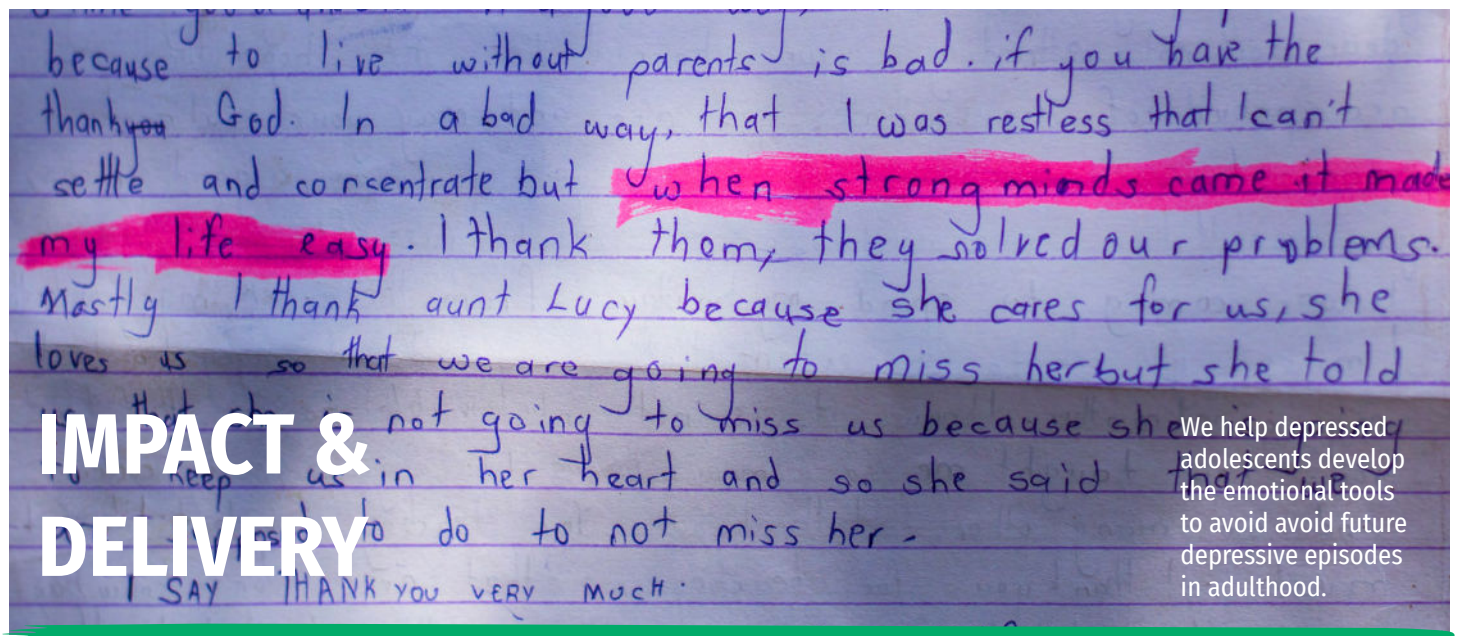 because to live without parents is bad. if you have the
thankyou God. In a bad way, that I was restless that I can't
settle and concentrate but when strong minds came it made
my life easy. I thank them, they solved our problems.
Mostly I thank aunt Lucy because she cares for us, she
loves us so that we are going to miss her but she told
us that she is not going to miss us because she
keep us in her heart and so she said that we
to do to not miss her.
I SAY THANK YOU VERY MUCH.
IMPACT &
DELIVERY
We help depressed
adolescents develop
the emotional tools
to avoid avoid future
depressive episodes
in adulthood.